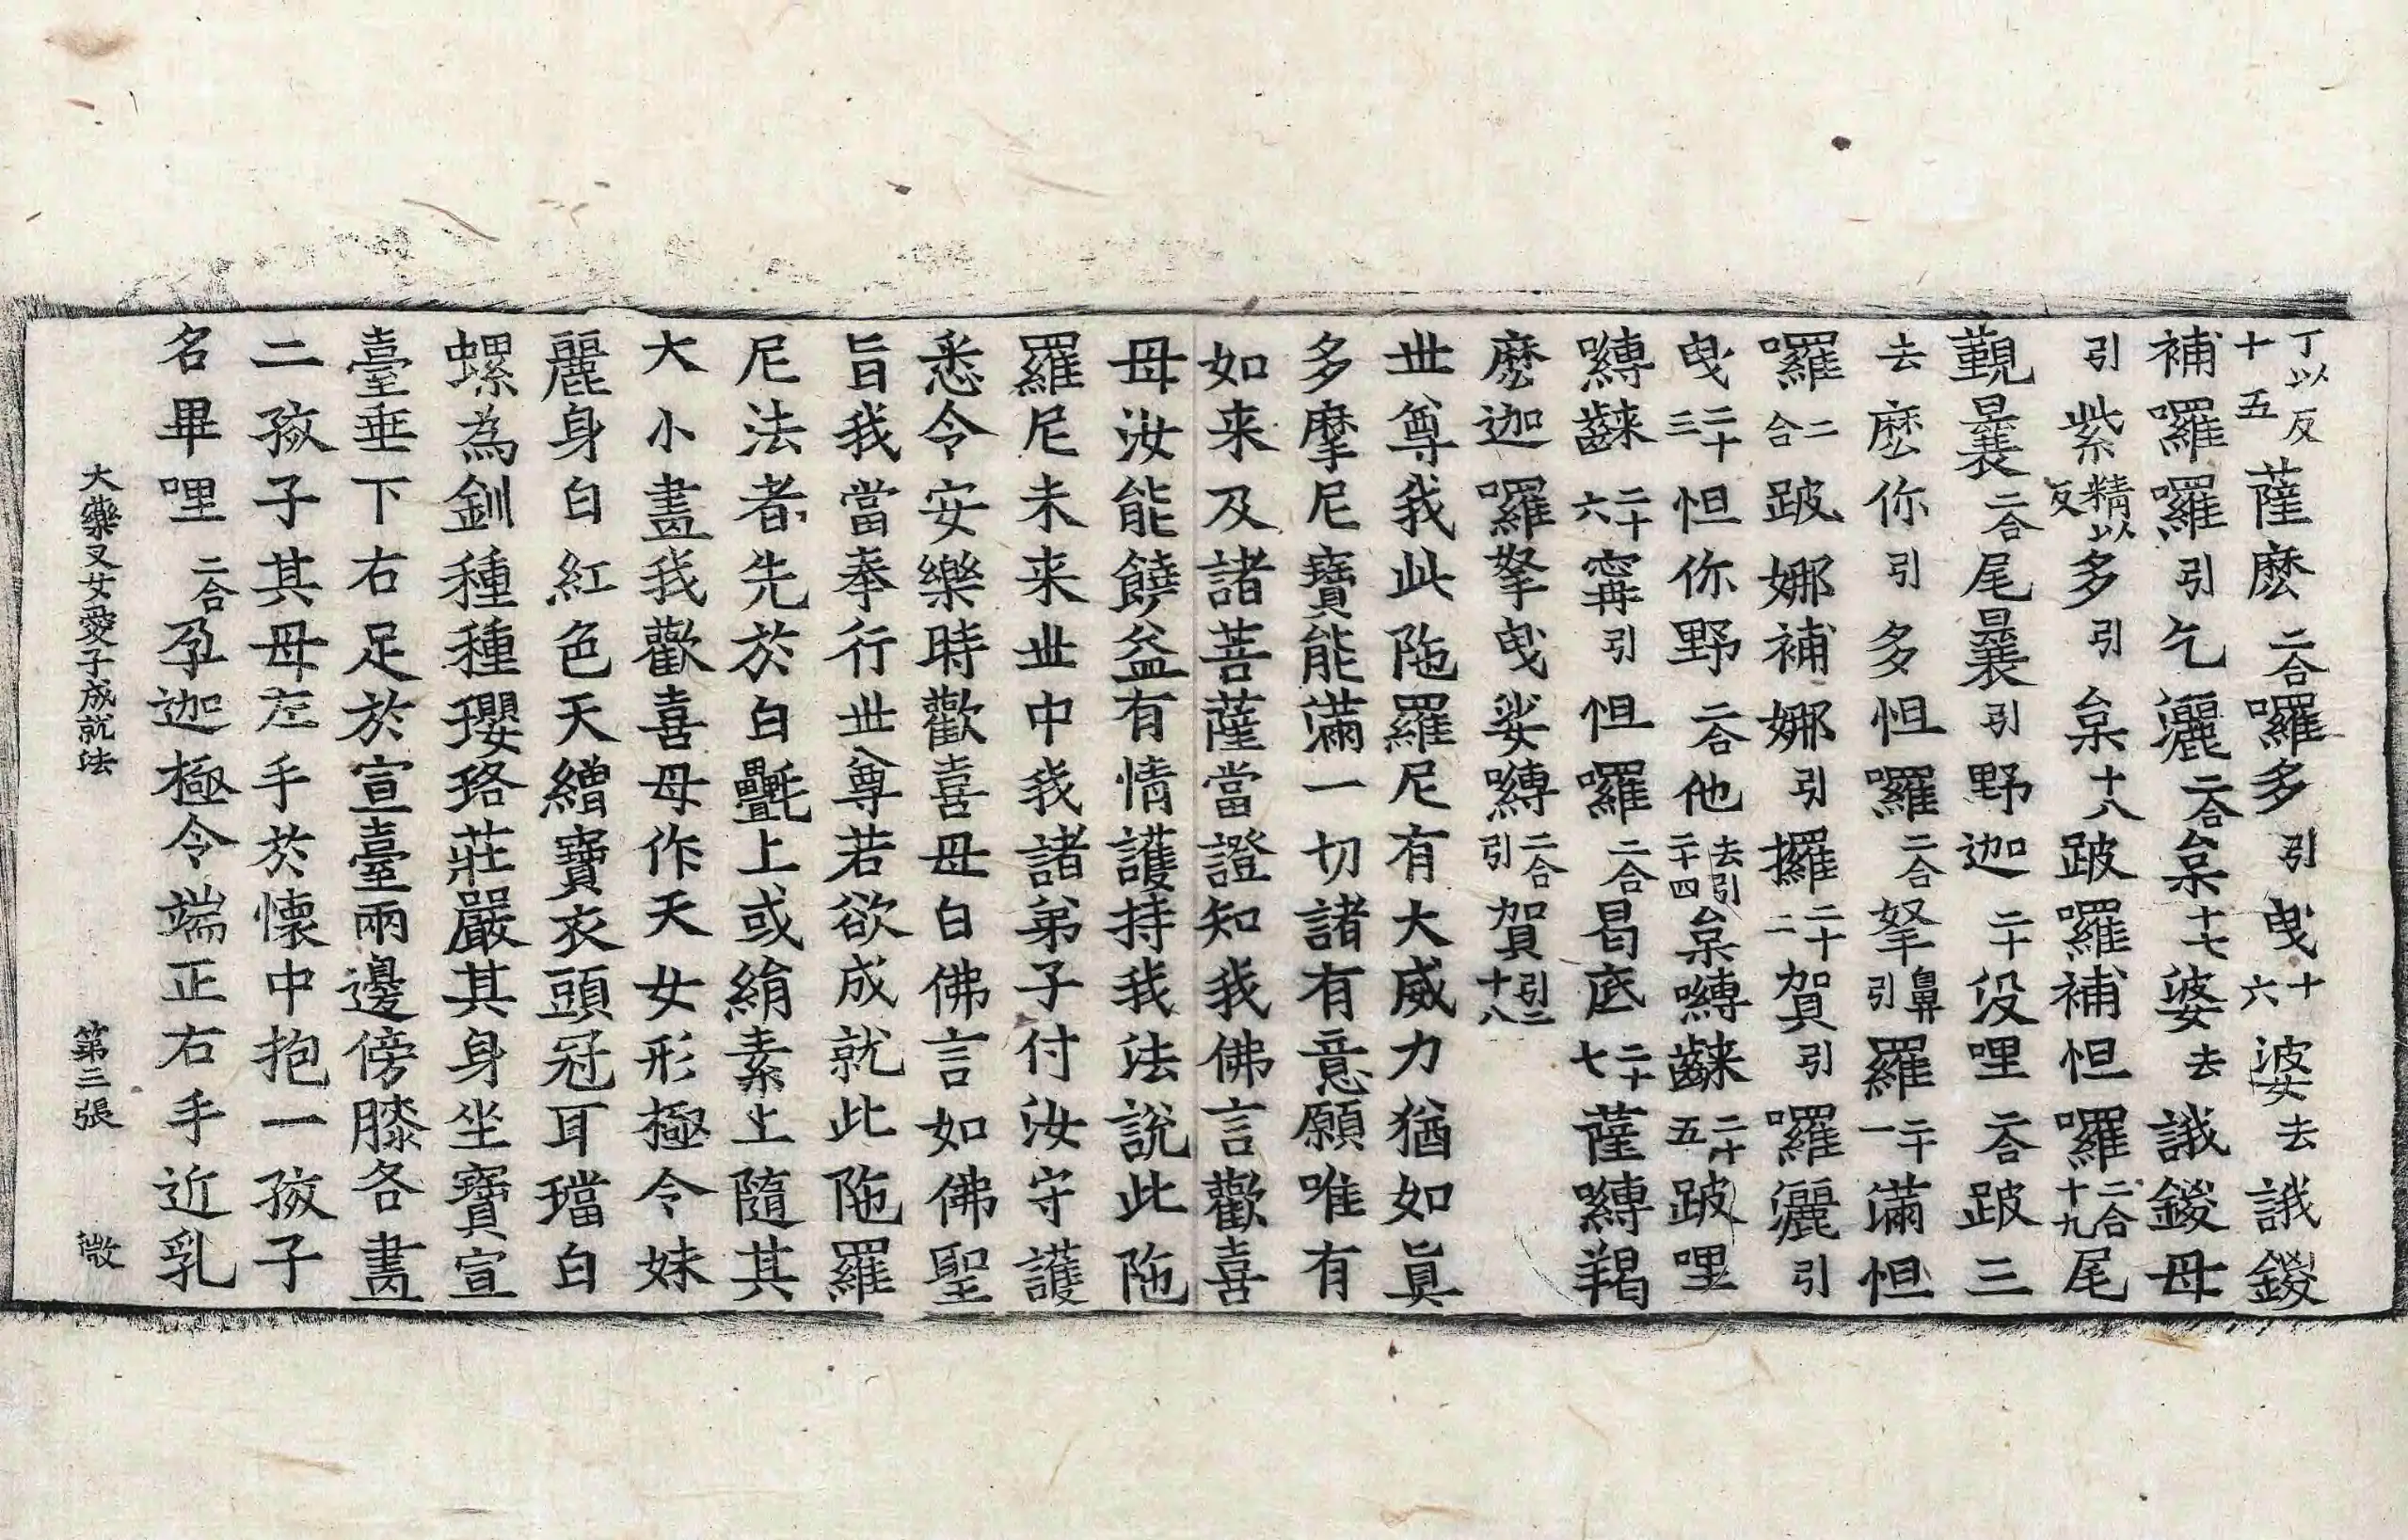 丁以反十五薩麽二合囉多引曳十六婆去誐鑁
補囉囉引乞灑二合桒十七婆去誐鑁母
引紫精以反多引桒十八跛囉補怛囉二合十九尾
覲曩二合尾曩引野迦二十没哩二合跛三
去麽你引多怛囉二合拏鼻引羅二十一滿怛
囉二合跛娜補娜引攞二十二賀引囉灑引
曳二十三怛你野二合他去引二十四桒嚩齼二十五跛哩
嚩齼二十六寗引怛囉二合曷底二十七薩嚩羯
麽迦囉拏曳娑嚩二合引賀引二十八
世尊我此陁羅尼有大威力猶如眞
多摩尼寶能滿一切諸有意願唯有
如来及諸菩薩當證知我佛言歡喜
母汝能饒益有情護持我法說此陁
羅尼未来世中我諸弟子付汝守護
悉令安樂時歡喜母白佛言如佛聖
旨我當奉行世尊若欲成就此陁羅
尼法者先於白㲲上或絹素上隨其
大小畫我歡喜母作天女形極令姝
麗身白紅色天繒寶衣頭冠耳璫白
螺為釧種種瓔珞莊嚴其身坐寶宣
臺垂下右足於宣臺兩邊傍膝各畫
二孩子其母左手於懷中抱一孩子
名畢哩二合孕迦極令端正右手近乳
大藥叉女愛子成就法 第三張 㣲